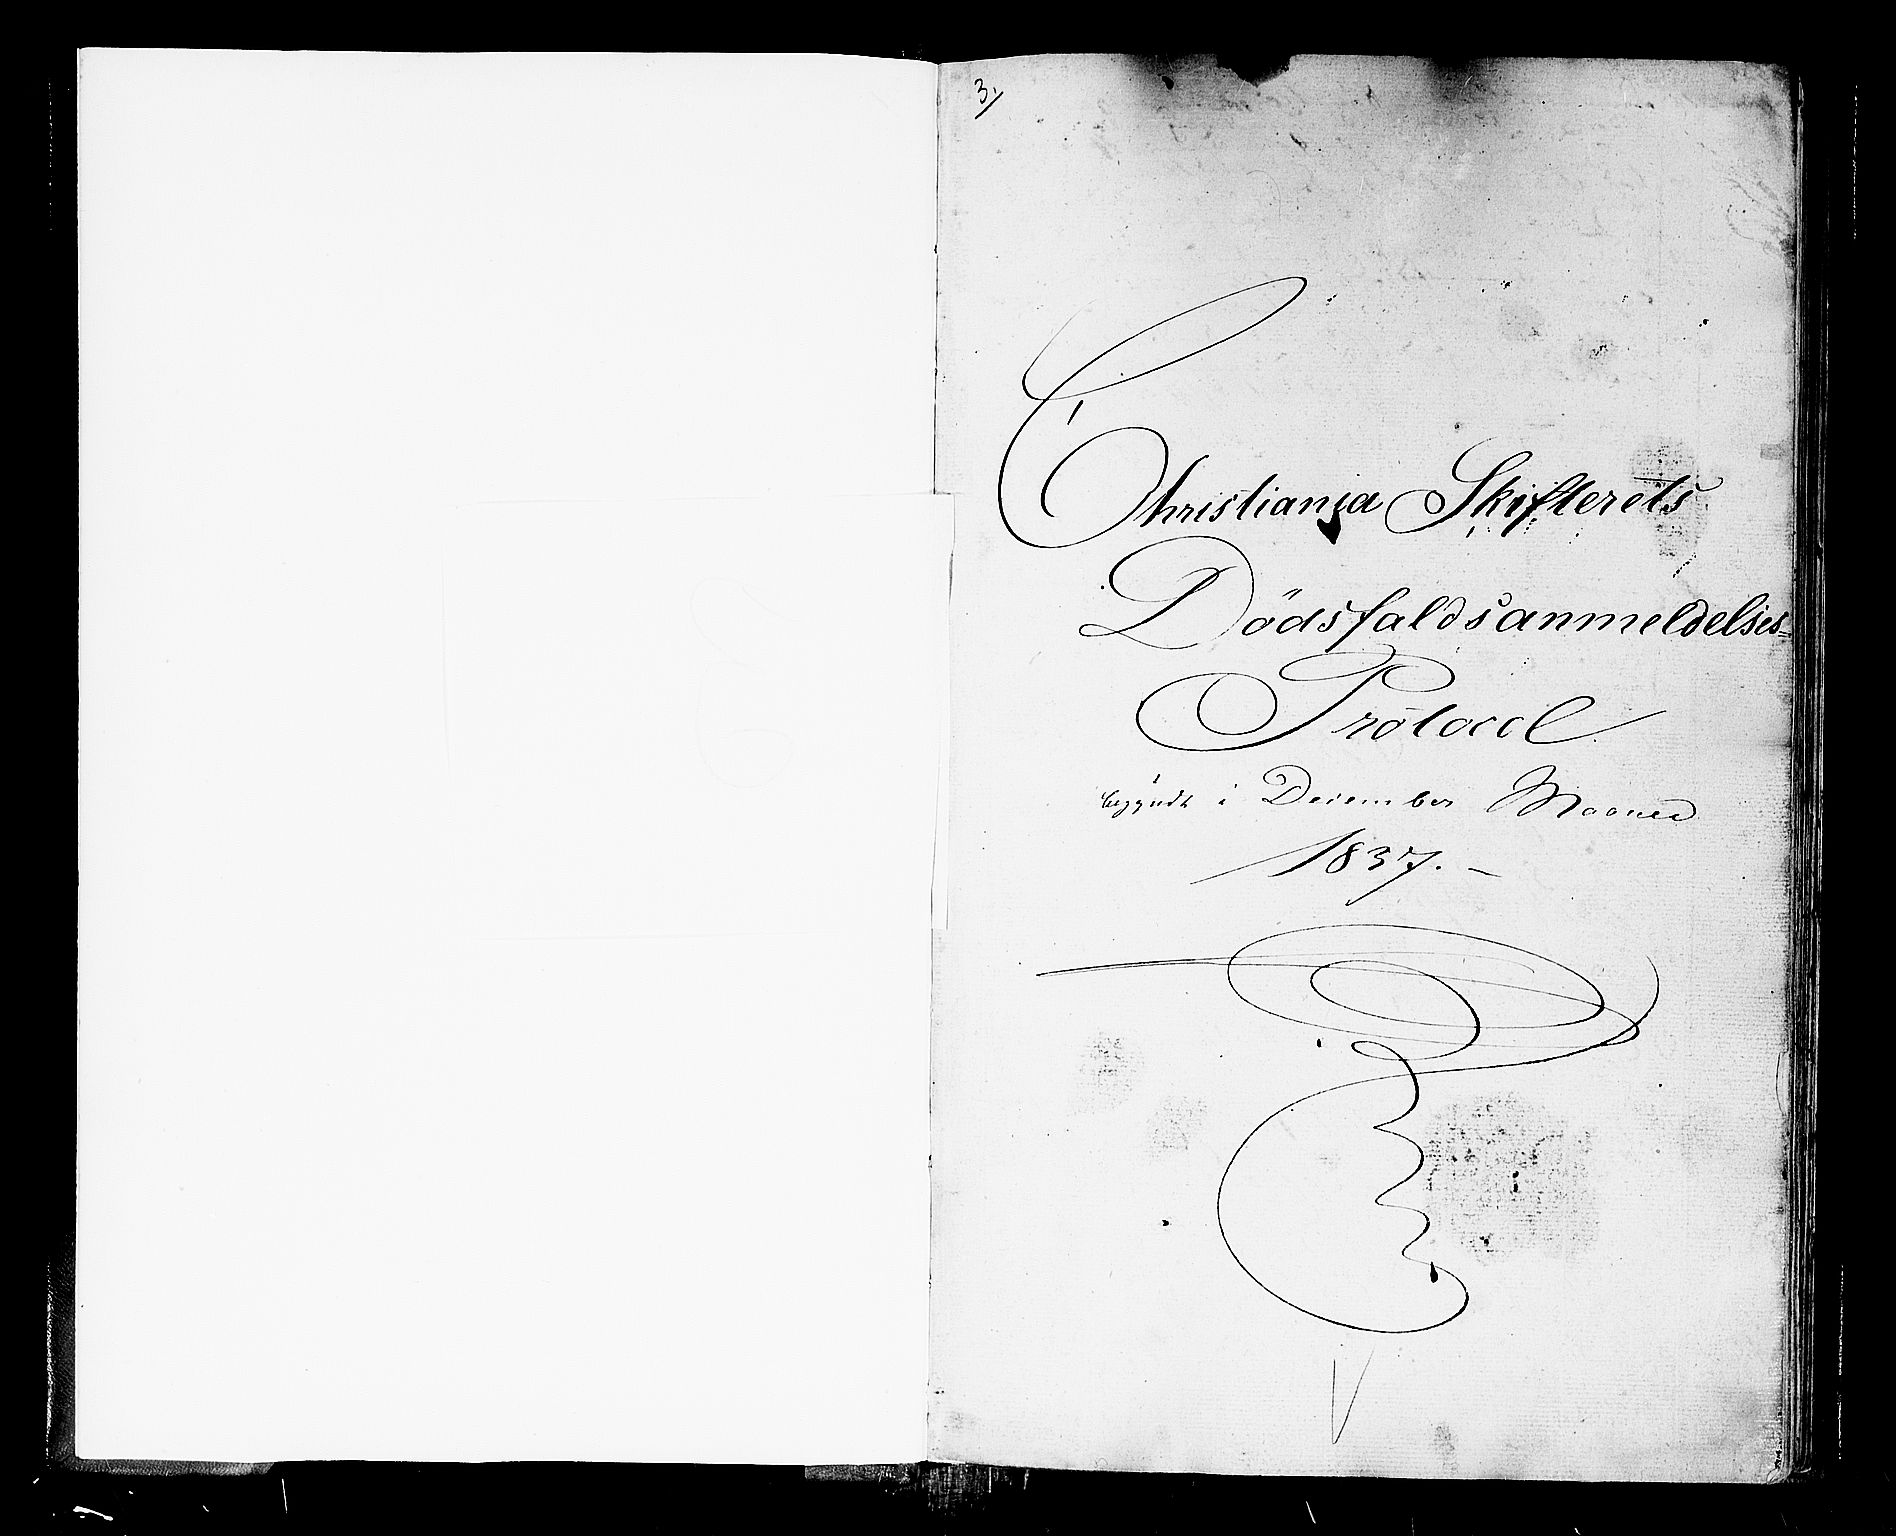 3.
Christiania Skifterets
Dödsfaldsanmeldelses-
Protocol
begyndt i December Maaned
1837. -